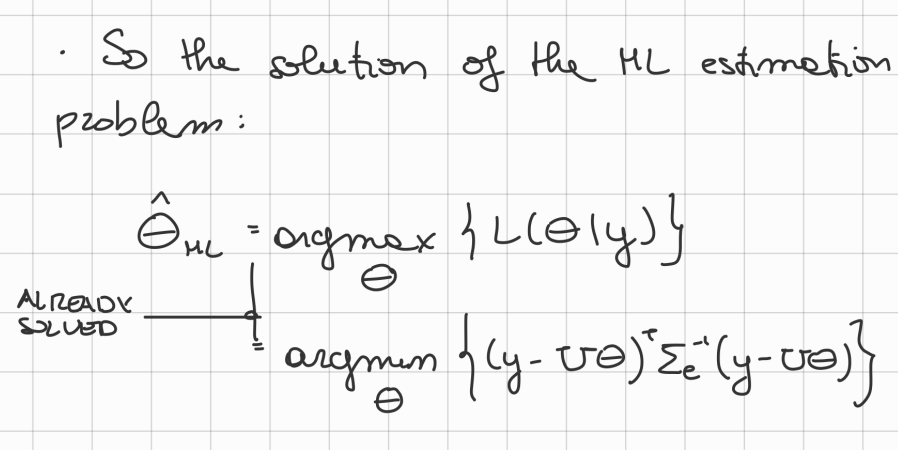 · So the solution of the ML estimation
problem:
θ̂_ML = argmax_θ { L(θ|y) }
ALREADY
SOLVED
= argmin_θ { (y - Uθ)ᵀ Σₑ⁻¹ (y - Uθ) }